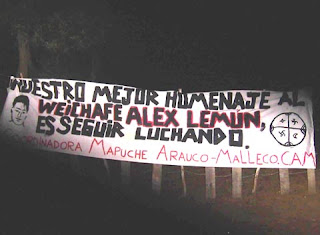 NUESTRO MEJOR HOMENAJE AL
WEICHAFE ALEX LEMUN,
ES SEGUIR LUCHANDO.
MAPUCHE ARAUCO-MALLECO.CAM